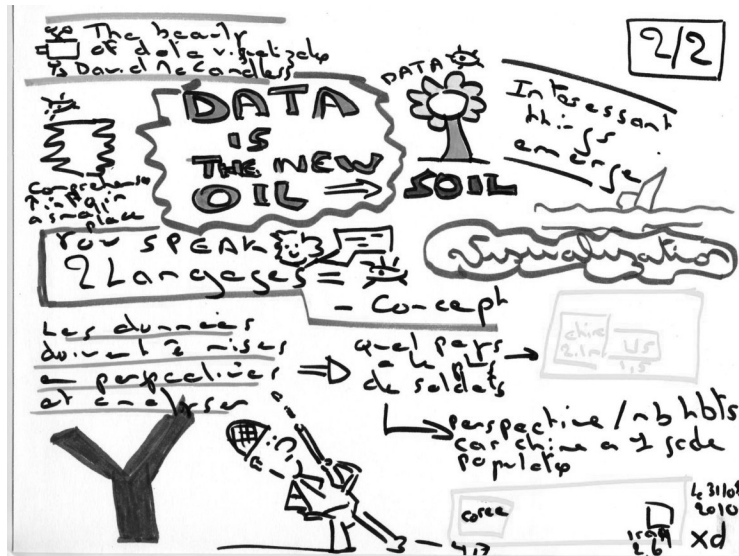 The beauty
of data visualizato
David McCandless
2/2
DATA
IS
THE NEW
OIL ⇒ SOIL
DATA
Interessant
things
emerge
a small
place
YOU SPEAK
2 Langages =
- Concept
Visualisation
Les données
doivent ê mises
en perspectives
et analyser
quel pays
a le plus
de soldats
chine
2.1m
US
1,5
perspective / nb hbts
car chine a 1 sode
populato
corée
4,7
iraq
2.4
Le 31/08
2010
xd